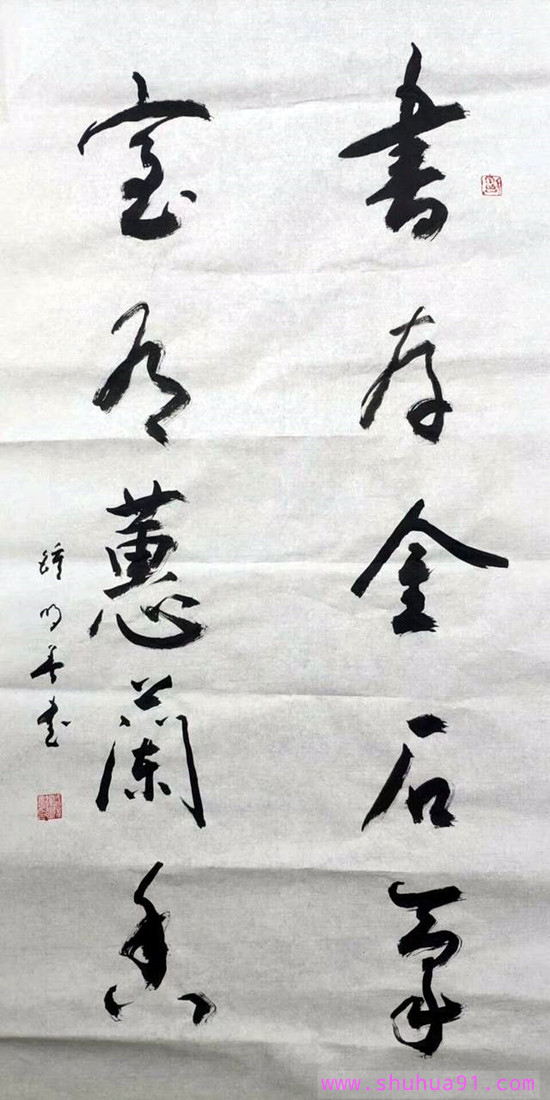 書存金石氣
室有蕙蘭香
鍾明善書
www.shuhua91.com